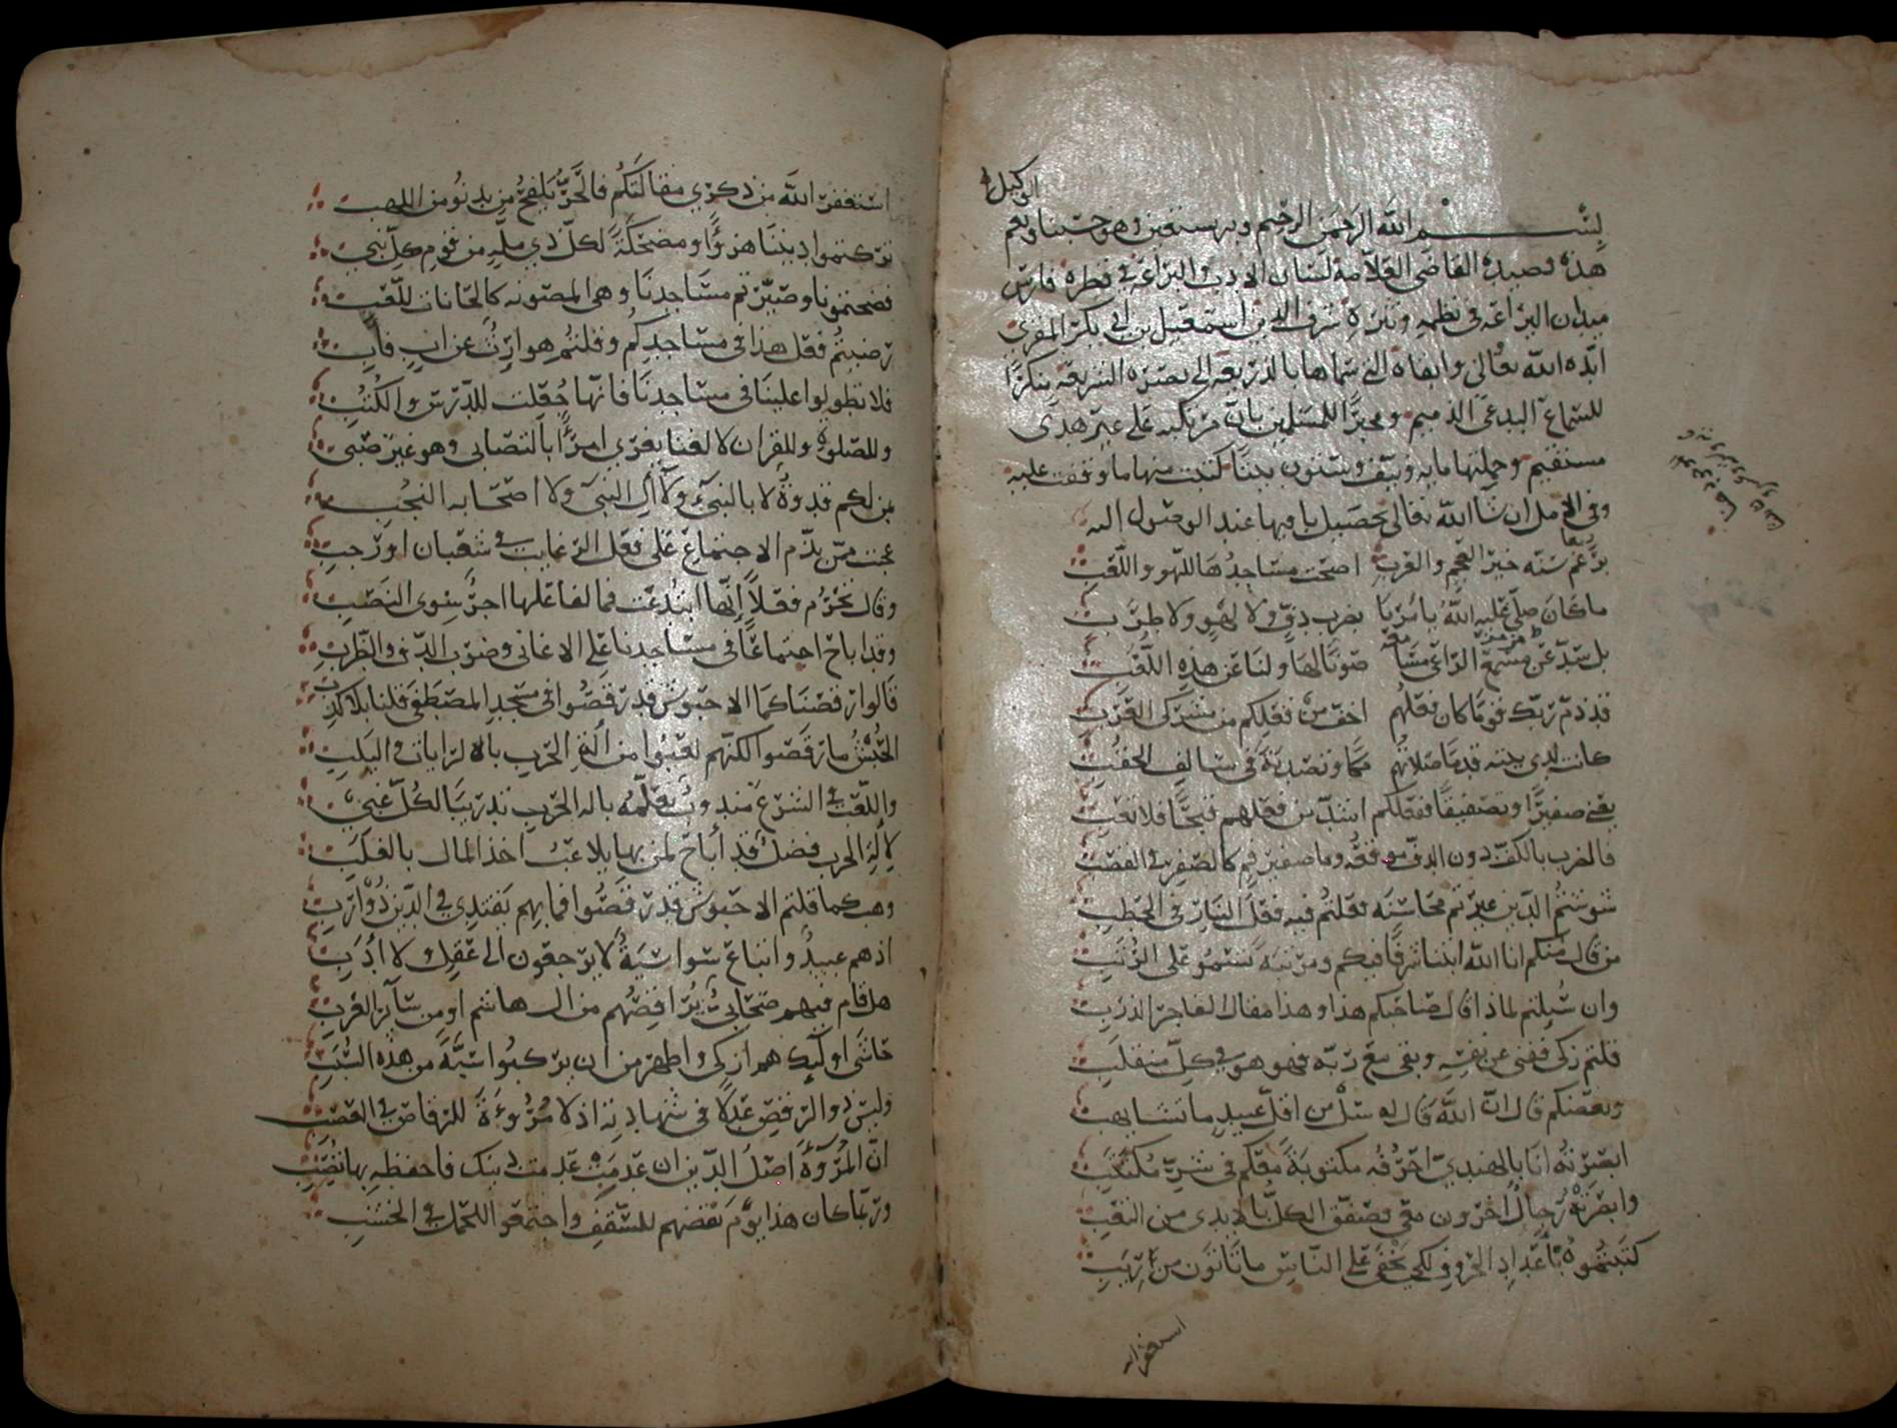 بسم الله الرحمن الرحيم وبه نستعين وهو حسبنا ونعم الوكيل
هذه قصيدة القاضي العلامة لسان الادب والبراعة في قطره فارس
ميدان البراعه في نظمه ونثره شرف الدين اسمعيل بن ابي بكر المقري
ايده الله تعالى وابقاه التي سماها بالذريعه الى نصره الشريعه منكرا
للسماع البدعي الذميم ومخبرا للمسلمين بان مرتكبه على غير هدى
مستقيم وجملتها مايه ونيف وستون بيتا كتبت منها ما وقفت عليه
وفي الامل ان شا الله تعالى تحصيل باقيها عند الوصول اليه
برغم سنه خير العجم والعرب اضحت مساجدها للهو واللعب
ما كان صلى عليه الله يامرنا بضرب دف ولا لهو ولا طرب
بل سد عن مزمر الراعي مسامعه صونا لها ولنا عن هذه اللعب
قد ذم ربك قوما كان فعلهم اخف من فعلكم من مشركي العرب
كانت لدى بيته قدما صلاتهم مكا وتصدية في سالف الحقب
يعني صفيرا وتصفيقا ففعلكم اشد من فعلهم قبحا فلا تعب
فالضرب بالكف دون الدف موقعه وما صفير فم كالصفر في القصب
شوشتم الدين غيرتم محاسنه فعلتم فيه فعل النار في الحطب
من قال منكم انا الله ابتنا شرفا فيكم ومرتبه تسمو على الرتب
وان سيلتم لماذا قال صاحبكم هذا وهذا مقال الفاجر الذرب
قلتم زكى ففنى عن نفسه وبقى مع ربه فهو هو في كل منقلب
وبعضكم قال ان الله قال له سل من اقل عبيد ما تشا يهب
ابصرته انا بالهندي احرفه مكتوبة معكم في شر مكتتب
وابصرته رجال اخرون معي فصفق الكل بالايدي من العجب
كتبتموه باعداد الحروف لكي يخفى على الناس ما تاتون من ريب
استغفر الله
استغفر الله من ذكري مقالتكم فالحر يلفح من يدنو من اللهب
تركتموا ديننا هزؤا ومضحكة لكل ذي مله من قوم كل نبي
فضحتمونا وصيرتم مساجدنا وهي المصونه كالحانات للعب
رضيتم فعل هذا في مساجدكم وقلتم هو ارث عن اب فاب
فلا تطولوا علينا في مساجدنا فانها جعلت للدرس والكتب
وللصلوة وللقران لا لغنا يغري امرأ بالتصابي وهو غير صبي
من لكم قدوة لا بالنبي ولا آل النبي ولا اصحابه النجب
عجبت ممن يذم الاجتماع على فعل الرغايب في شعبان او رجب
وقال تحرم فعلا انها ابتدعت فما لفاعلها اجر سوى النصب
وقد اباح اجتماعا في مساجدنا على الاغاني وضرب الدف والطرب
قالوا رقصنا كما الاحبوش قد رقصوا في مسجد المصطفى قلنا بلا كذب
الحبش ما رقصوا لكنهم لعبوا من الة الحرب بالالرايات في اليلب
واللعب في الشرع مندوب تعلمه باله الحرب تدريبا لكل غبي
لالة الحرب فضل قد أباح لمن بها يلاعب اخذ المال بالغلب
وهب كما قلتم الاحبوش قد رقصوا فما بهم يقتدي في الدين ذو ارب
اذ هم عبيد واتباع سواسية لا يرجعون الى عقل ولا أدب
هل قام فيهم صحابي يراقصهم من ال هاشم او من سآير العرب
حاشى اوليك هم ازكى واطهر من ان يركبوا سبة من هذه السبب
وليس ذو الرقص عدلا في شهادته اذ لا مروءة للرقاص في العصب
ان المروة اصل الدين ان عدمت عدمت دينك فاحفظه بها تصب
وربما كان هذا يوم نقضهم للسقف واجتمعوا للحمل في الخشب